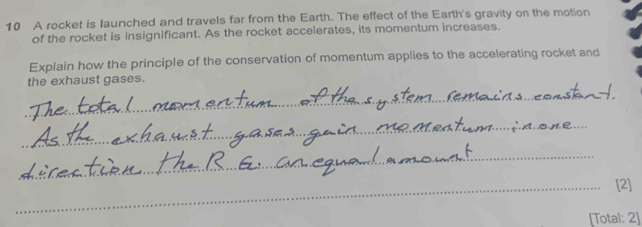 10 A rocket is launched and travels far from the Earth. The effect of the Earth's gravity on the motion
of the rocket is insignificant. As the rocket accelerates, its momentum increases.
Explain how the principle of the conservation of momentum applies to the accelerating rocket and
the exhaust gases.
The total momentum of the system remains constant.
As the exhaust gases gain momentum in one
direction the R G. an equal amount
[2]
[Total: 2]